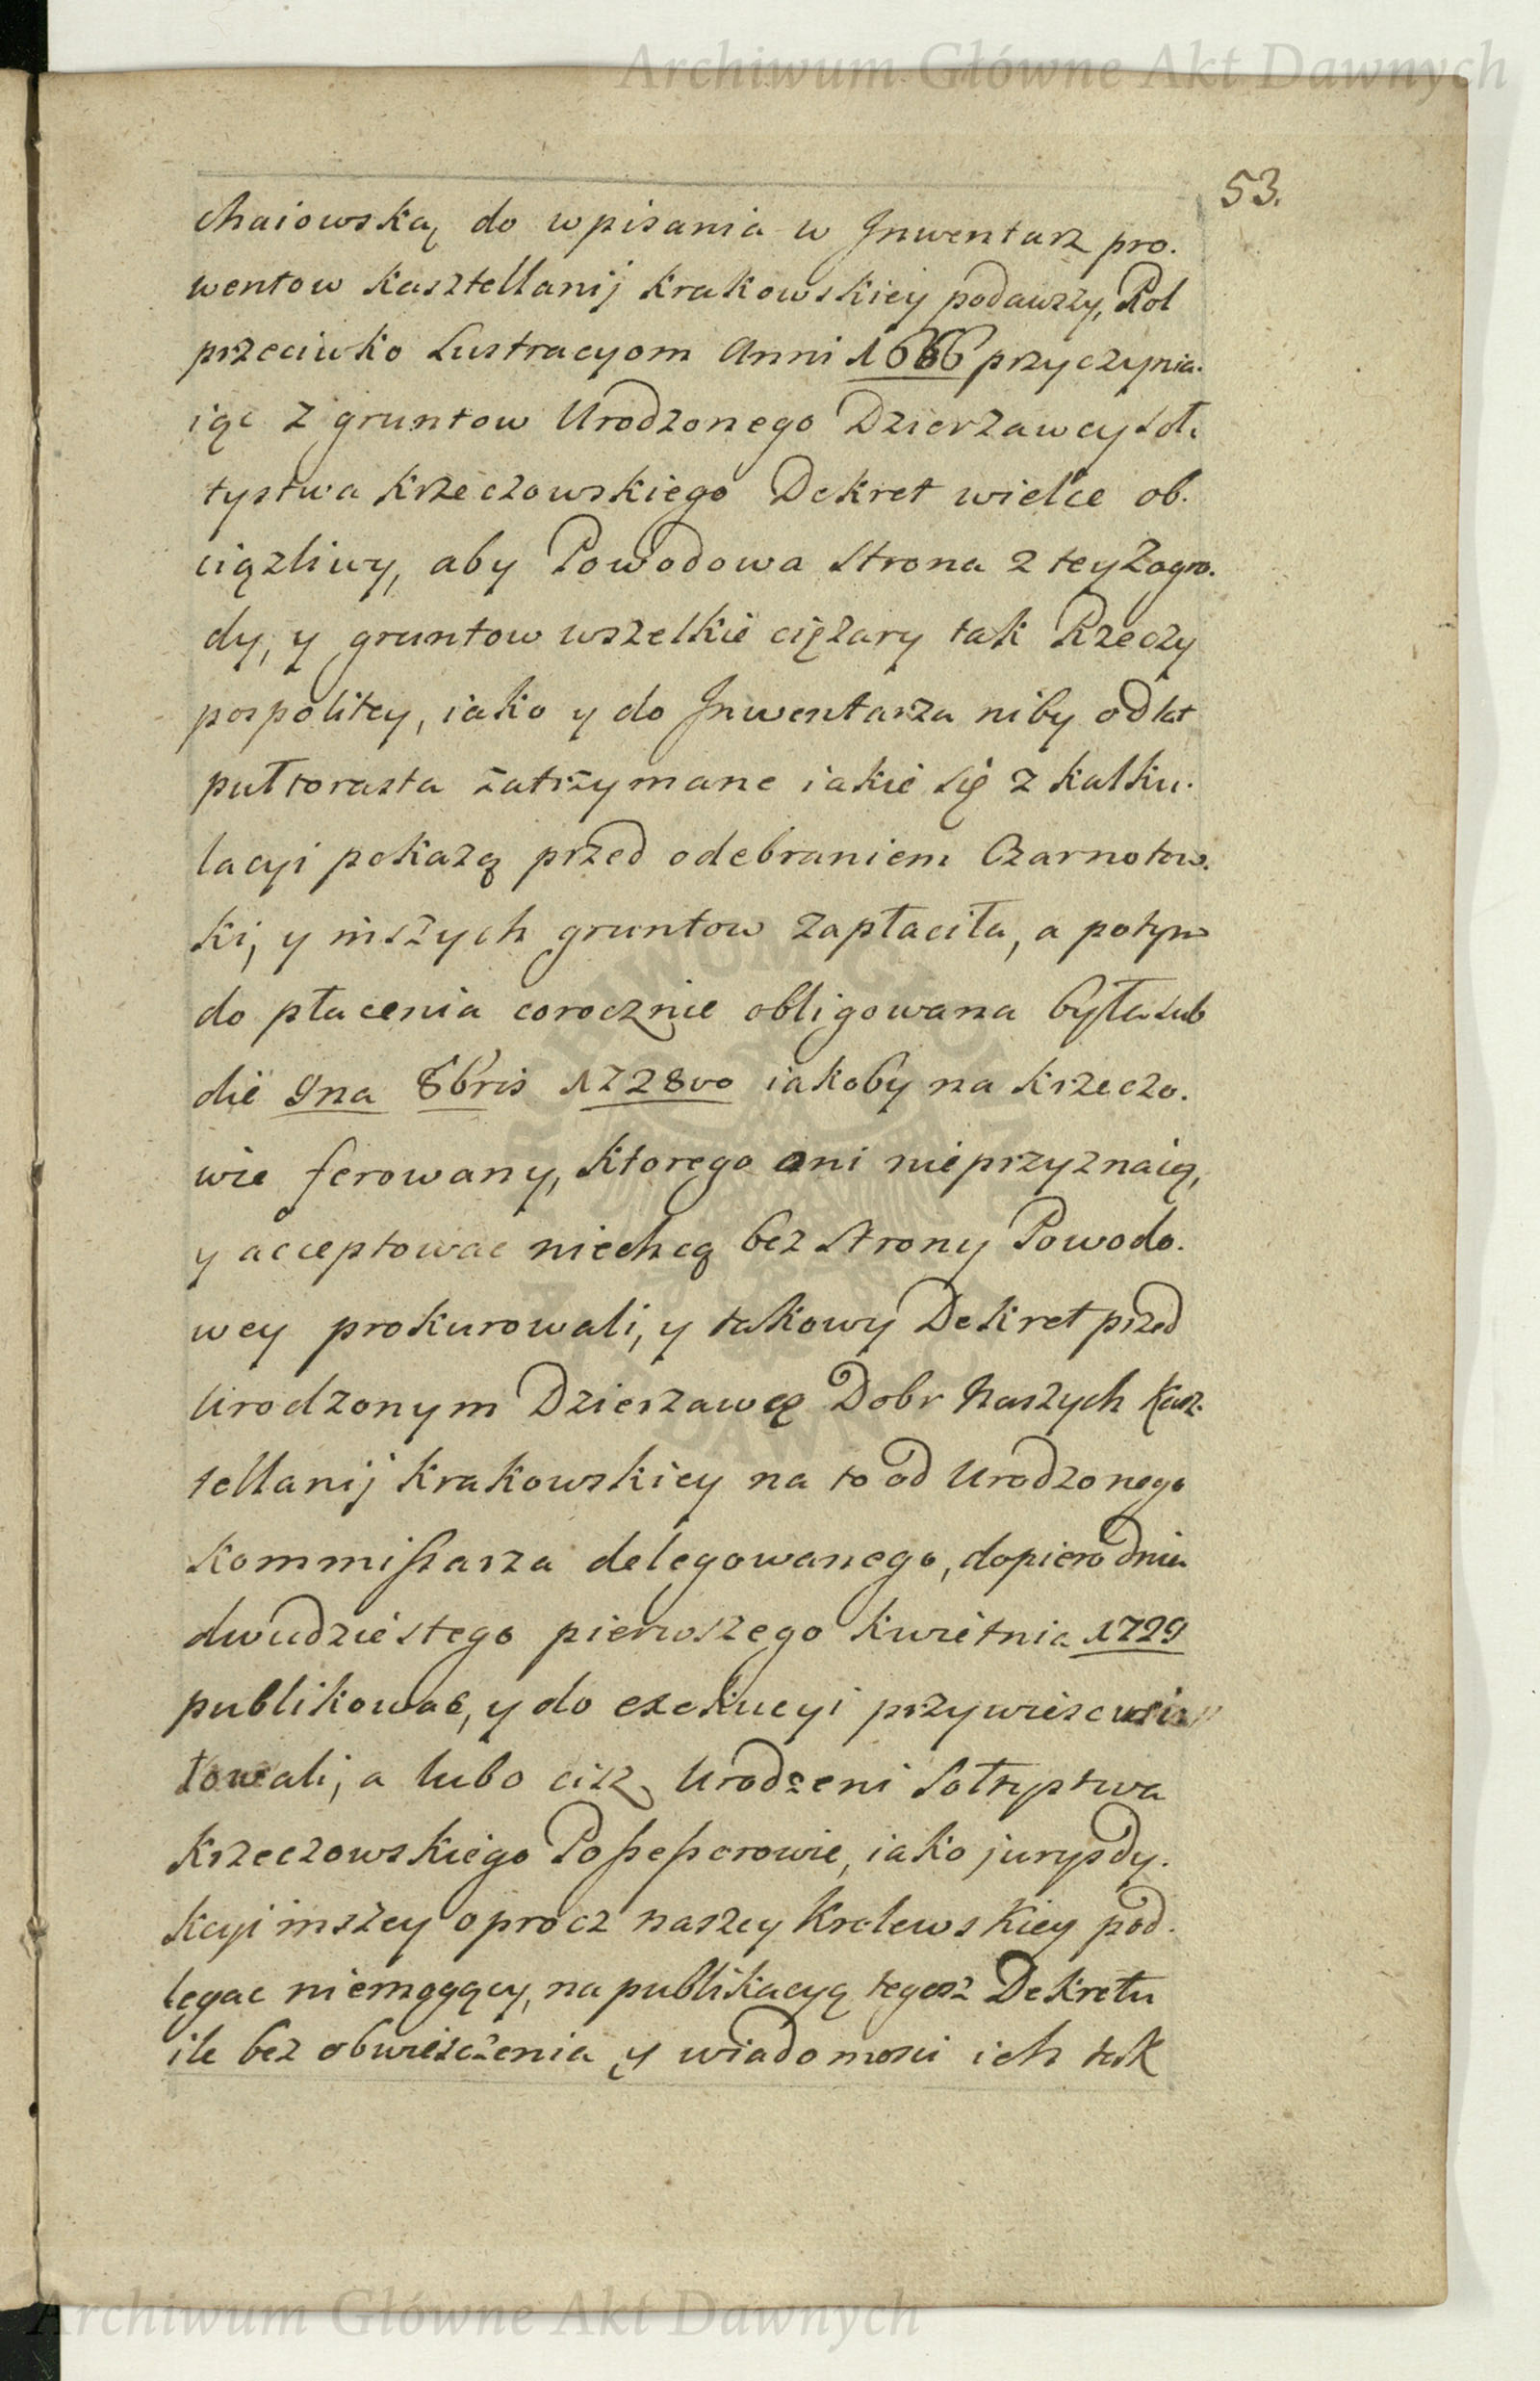 Archiwum Główne Akt Dawnych
53.
chaiowską do wpisania w Inwentarz pro.
wentow Kasztellanij Krakowskiey podawszy, Rol
przeciwko Lustracyom Anni 1666 przyczynia.
iąc z gruntow Urodzonego Dzierzawcy Soł.
tystwa Krzeczowskiego Dekret wielce ob.
ciązliwy, aby Powodowa Strona z tey Zagro.
dy, y gruntow wszelkie cięzary tak Rzeczy
pospolitey, iako y do Inwentarza niby od lat
pułtorasta zatrzymane iakie się z kalku.
lacyi pokazą przed odebraniem Czarnotow.
ki, y inszych gruntow zapłaciła, a potym
do płacenia corocznie obligowana była sub
die 9na 8bris 1728vo iakoby na Krzeczo.
wie ferowany, ktorego oni nieprzyznaią,
y acceptowac niechcą bez Strony Powodo.
wey prokurowali, y takowy Dekret przed
Urodzonym Dzierzawcą Dobr Naszych Kasz.
tellanij Krakowskiey na to od Urodzonego
Kommissarza delegowanego, dopiero dnia
dwudziestego pierwszego Kwietnia 1729
publikowac, y do exekucyi przywiesc usi
towali, a lubo cisz Urodzeni Sołtystwa
Krzeczowskiego Possessorowie, iako jurysdy.
kcyi inszey oprocz naszey Krolewskiey pod.
legac niemogący, na publikacyą tegosz Dekretu
ile bez obwieszczenia y wiadomosci ich tak
ARCHIWUM GŁÓWNE AKT DAWNYCH
Archiwum Główne Akt Dawnych